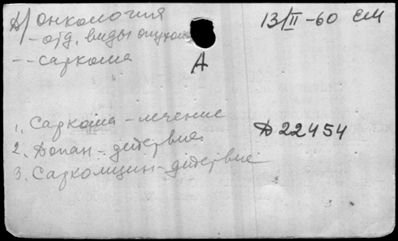 А/ онкология 13/II-60 ЕМ
- отд. виды опухол
-- саркома
А
1. Саркома - лечение
Д 22454
2. Допан - действие
3. Саркомицин - действие